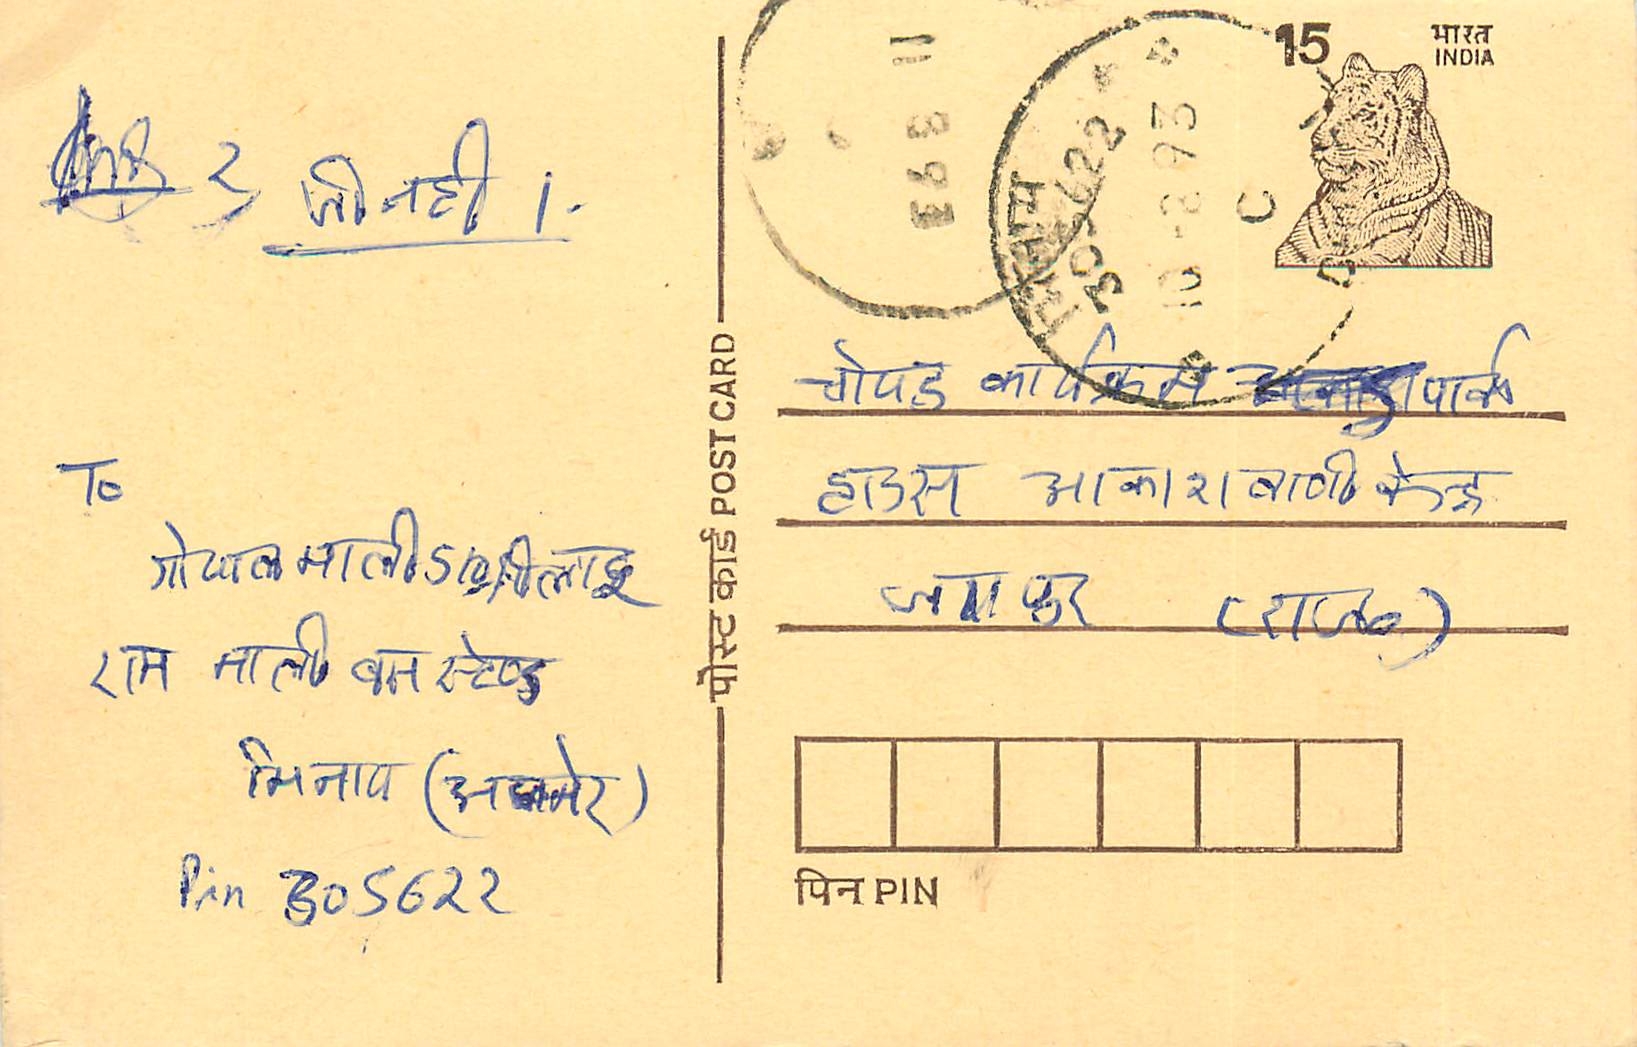 15 भारत
INDIA
11 3 93
भिनाय 305622
10-2-93
C
D
2 जी नही ।.
चोपड कार्यक्रम पार्क
हाउस आकाशवाणी केन्द्र
जयपुर (राज०)
पोस्ट कार्ड POST CARD
To
गोपाल माली S/o श्री लादू
राम माली बस स्टेण्ड
भिनाय (अजमेर)
Pin 305622
पिन PIN